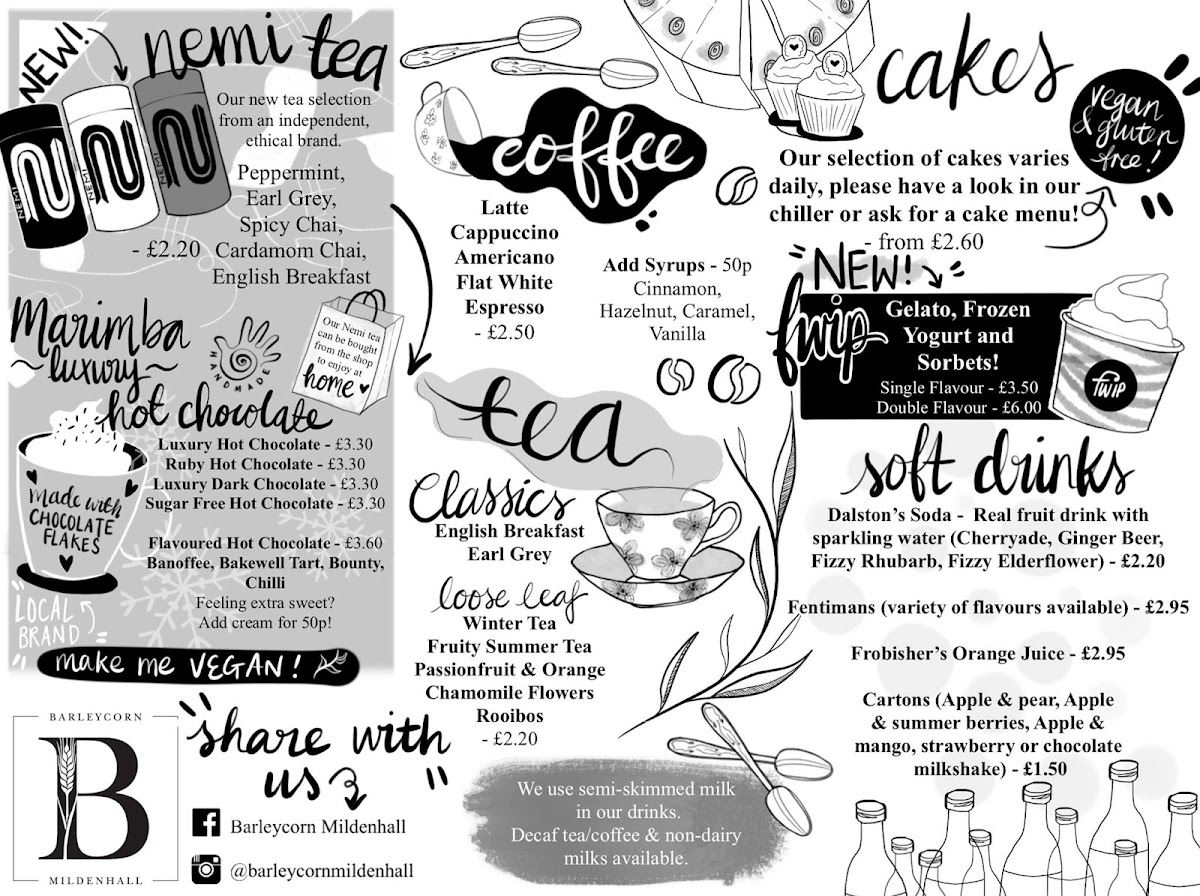 NEW!
nemi tea
Our new tea selection
from an independent,
ethical brand.
Peppermint,
Earl Grey,
Spicy Chai,
Cardamom Chai,
English Breakfast
- £2.20
NEMI
NEMI
NEMI
Marimba
~luxury~
hot chocolate
HANDMADE
Our Nemi tea
can be bought
from the shop
to enjoy at
home
Luxury Hot Chocolate - £3.30
Ruby Hot Chocolate - £3.30
Luxury Dark Chocolate - £3.30
Sugar Free Hot Chocolate - £3.30
Flavoured Hot Chocolate - £3.60
Banoffee, Bakewell Tart, Bounty,
Chilli
Feeling extra sweet?
Add cream for 50p!
made with
CHOCOLATE
FLAKES
LOCAL
BRAND
make me VEGAN!
BARLEYCORN
B
MILDENHALL
"share with
us"
Barleycorn Mildenhall
@barleycornmildenhall
coffee
Latte
Cappuccino
Americano
Flat White
Espresso
- £2.50
Add Syrups - 50p
Cinnamon,
Hazelnut, Caramel,
Vanilla
tea
Classics
English Breakfast
Earl Grey
loose leaf
Winter Tea
Fruity Summer Tea
Passionfruit & Orange
Chamomile Flowers
Rooibos
- £2.20
We use semi-skimmed milk
in our drinks.
Decaf tea/coffee & non-dairy
milks available.
cakes
vegan
& gluten
free!
Our selection of cakes varies
daily, please have a look in our
chiller or ask for a cake menu!
- from £2.60
"NEW!"
fwip
Gelato, Frozen
Yogurt and
Sorbets!
Single Flavour - £3.50
Double Flavour - £6.00
fwip
soft drinks
Dalston's Soda - Real fruit drink with
sparkling water (Cherryade, Ginger Beer,
Fizzy Rhubarb, Fizzy Elderflower) - £2.20
Fentimans (variety of flavours available) - £2.95
Frobisher's Orange Juice - £2.95
Cartons (Apple & pear, Apple
& summer berries, Apple &
mango, strawberry or chocolate
milkshake) - £1.50